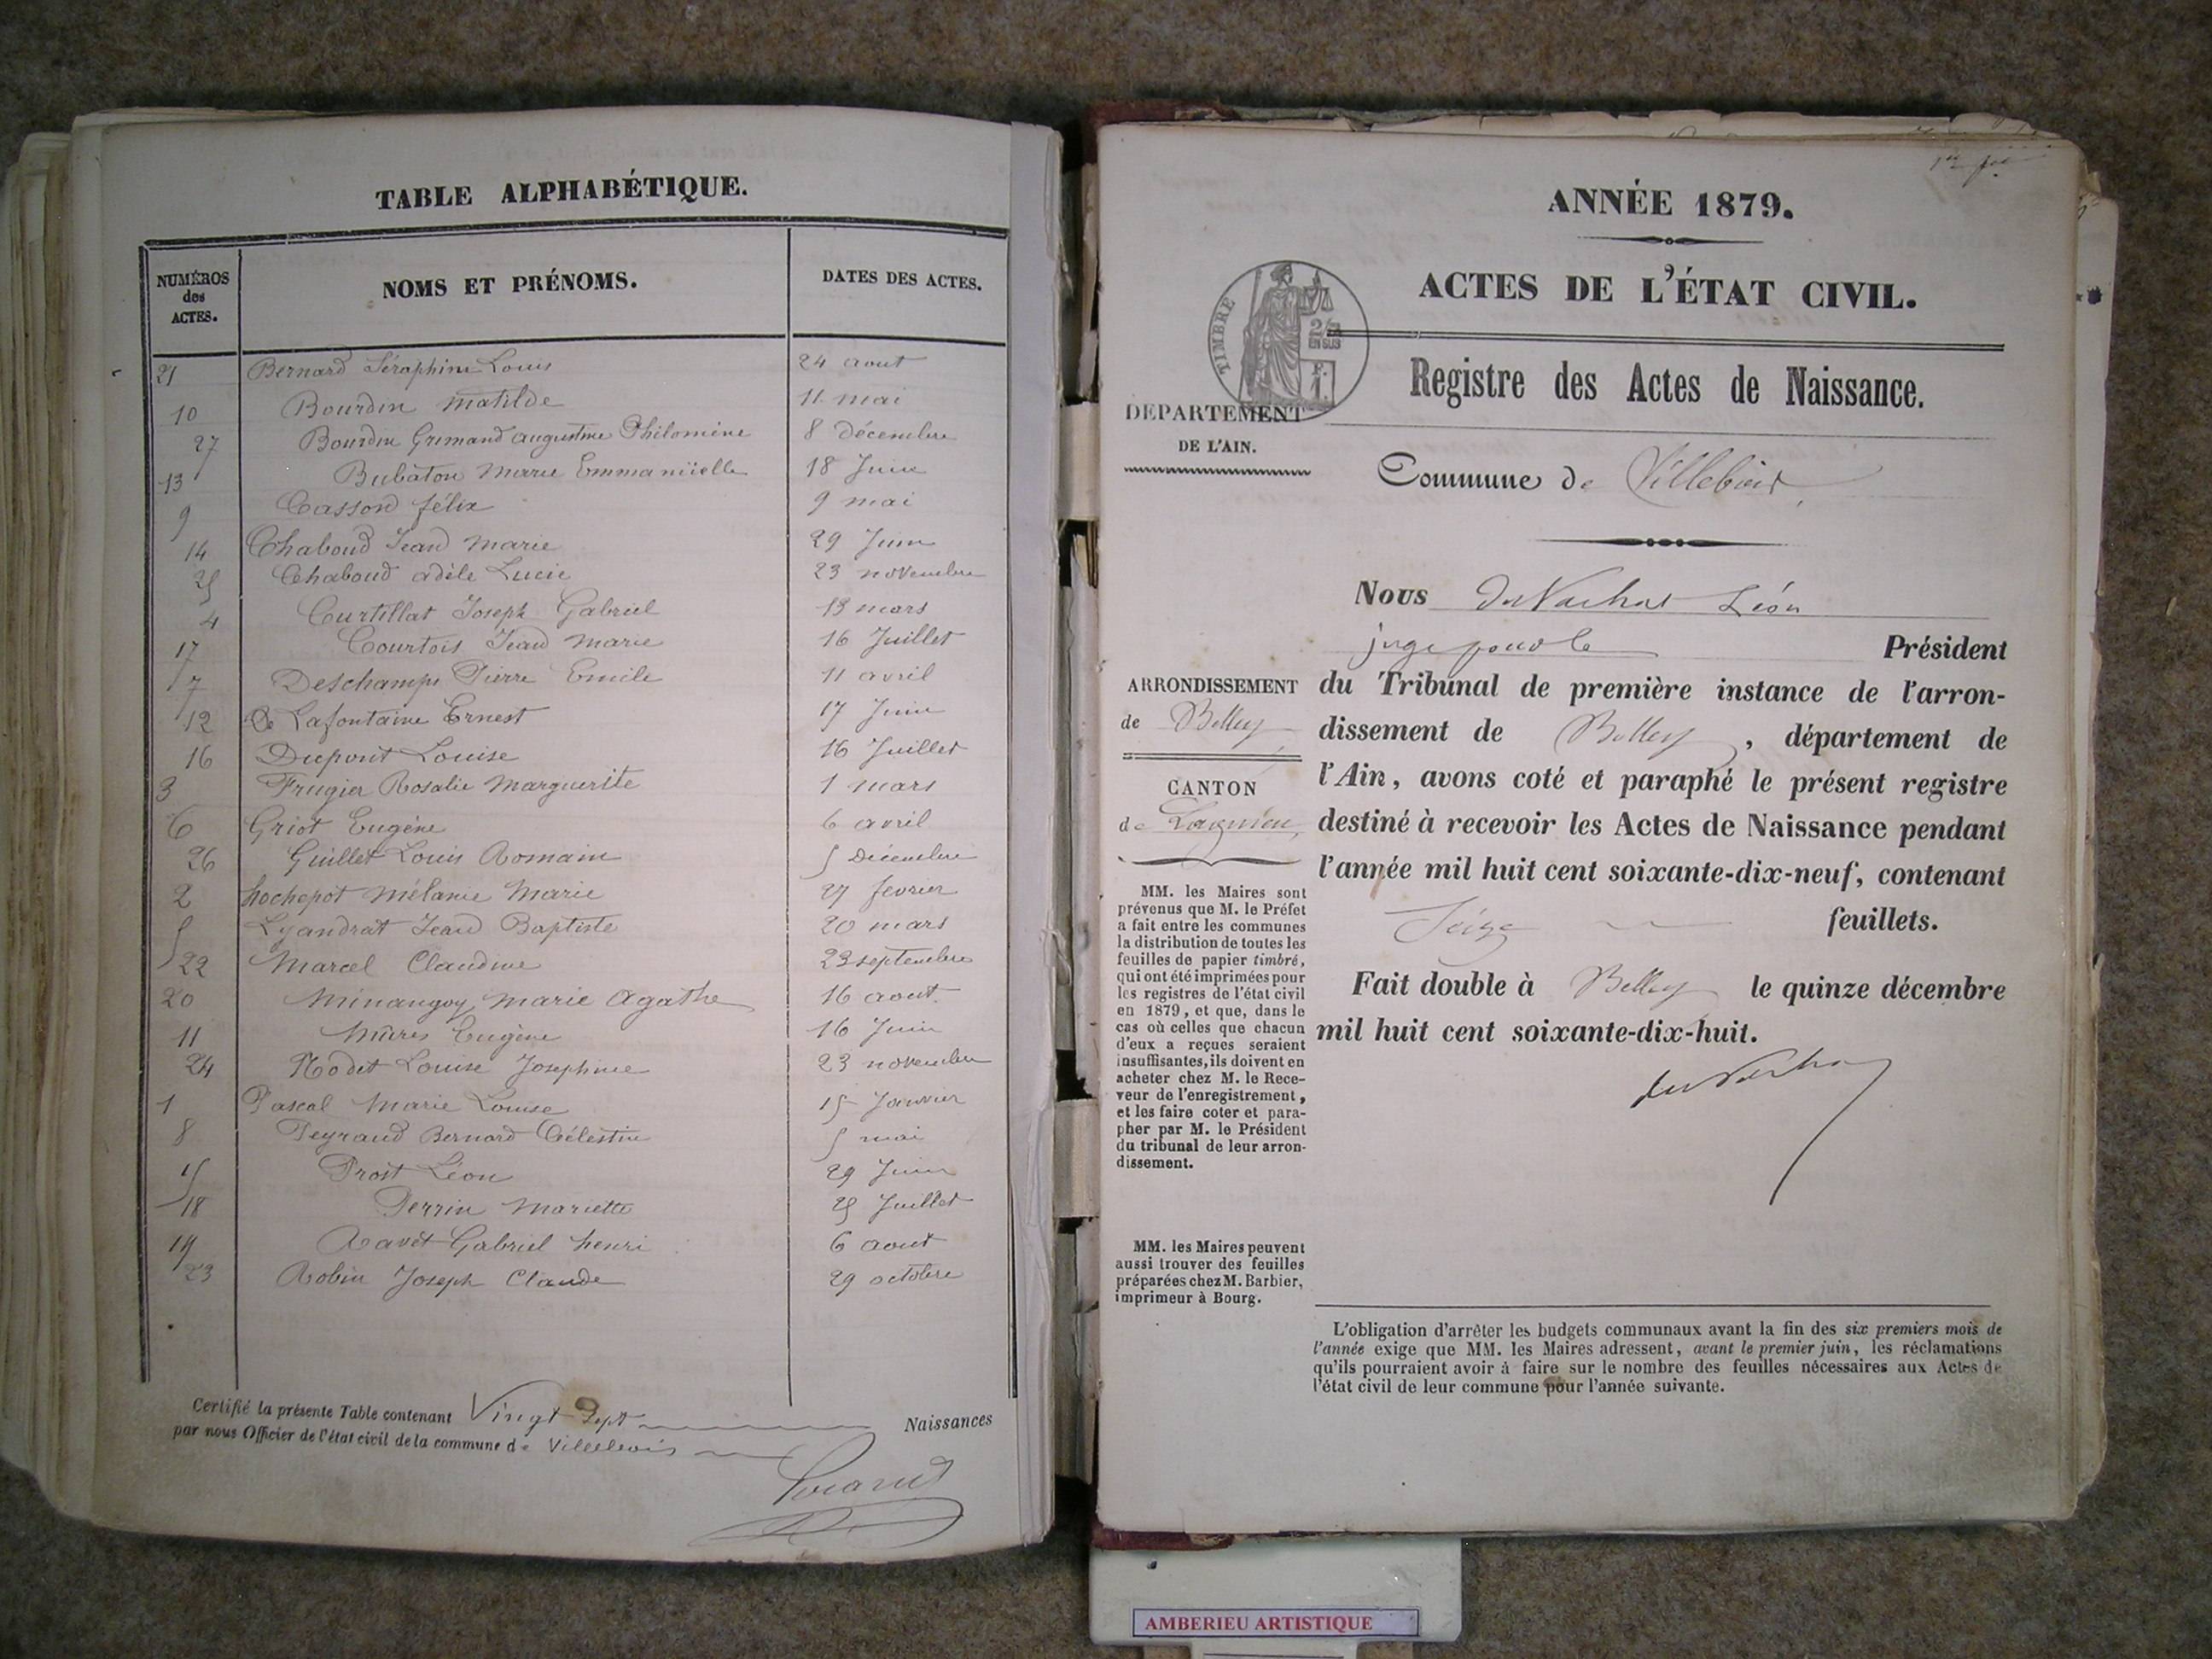 TABLE ALPHABÉTIQUE.
NUMÉROS des ACTES. NOMS ET PRÉNOMS. DATES DES ACTES.
21 Bernard Séraphine Louis 24 aout
10 Bourdin Matilde 11 mai
27 Bourdin Grimand augustine Philomène 8 décembre
13 Bubaton Marie Emmanüelle 18 Juin
9 Casson félix 9 mai
14 Chaboud Jean Marie 29 Juin
25 Chaboud adèle Lucie 23 novembre
4 Curtillat Joseph Gabriel 13 mars
17 Courtois Jean Marie 16 Juillet
7 Deschamps Pierre Emile 11 avril
12 De Lafontaine Ernest 17 Juin
16 Dupont Louise 16 Juillet
3 Frugier Rosalie Marguerite 1 mars
6 Griot Eugène 6 avril
26 Guillet Louis Romain 5 Décembre
2 hochepot Mélanie Marie 27 fevrier
5 Lyandrat Jean Baptiste 20 mars
22 Marcel Claudine 23 septembre
20 Minangoy Marie Agathe 16 aout
11 Mûres Eugène 16 Juin
24 Nodet Louise Josephine 23 novembre
1 Pascal Marie Louise 15 Janvier
8 Peyraud Bernard Célestin 5 mai
15 Prost Léon 29 Juin
18 Perrin Mariette 25 Juillet
19 Ravet Gabriel henri 6 aout
23 Robin Joseph Claude 29 octobre
Certifié la présente Table contenant Vingt Sept Naissances
par nous Officier de l'état civil de la commune de Villebois
ANNÉE 1879.
ACTES DE L'ÉTAT CIVIL.
TIMBRE
2/10
EN SUS
Registre des Actes de Naissance.
DÉPARTEMENT
DE L'AIN.
Commune de Villebois
Nous du Vachat Léon
juge pour le Président
du Tribunal de première instance de l'arron-
dissement de Belley, département de
l'Ain, avons coté et paraphé le présent registre
destiné à recevoir les Actes de Naissance pendant
l'année mil huit cent soixante-dix-neuf, contenant
Seize feuillets.
Fait double à Belley le quinze décembre
mil huit cent soixante-dix-huit.
du Vachat
ARRONDISSEMENT
de Belley
CANTON
de Lagnieu
MM. les Maires sont
prévenus que M. le Préfet
a fait entre les communes
la distribution de toutes les
feuilles de papier timbré,
qui ont été imprimées pour
les registres de l'état civil
en 1879, et que, dans le
cas où celles que chacun
d'eux a reçues seraient
insuffisantes, ils doivent en
acheter chez M. le Rece-
veur de l'enregistrement,
et les faire coter et para-
pher par M. le Président
du tribunal de leur arron-
dissement.
MM. les Maires peuvent
aussi trouver des feuilles
préparées chez M. Barbier,
imprimeur à Bourg.
L'obligation d'arrêter les budgets communaux avant la fin des six premiers mois de
l'année exige que MM. les Maires adressent, avant le premier juin, les réclamations
qu'ils pourraient avoir à faire sur le nombre des feuilles nécessaires aux Actes de
l'état civil de leur commune pour l'année suivante.
AMBERIEU ARTISTIQUE